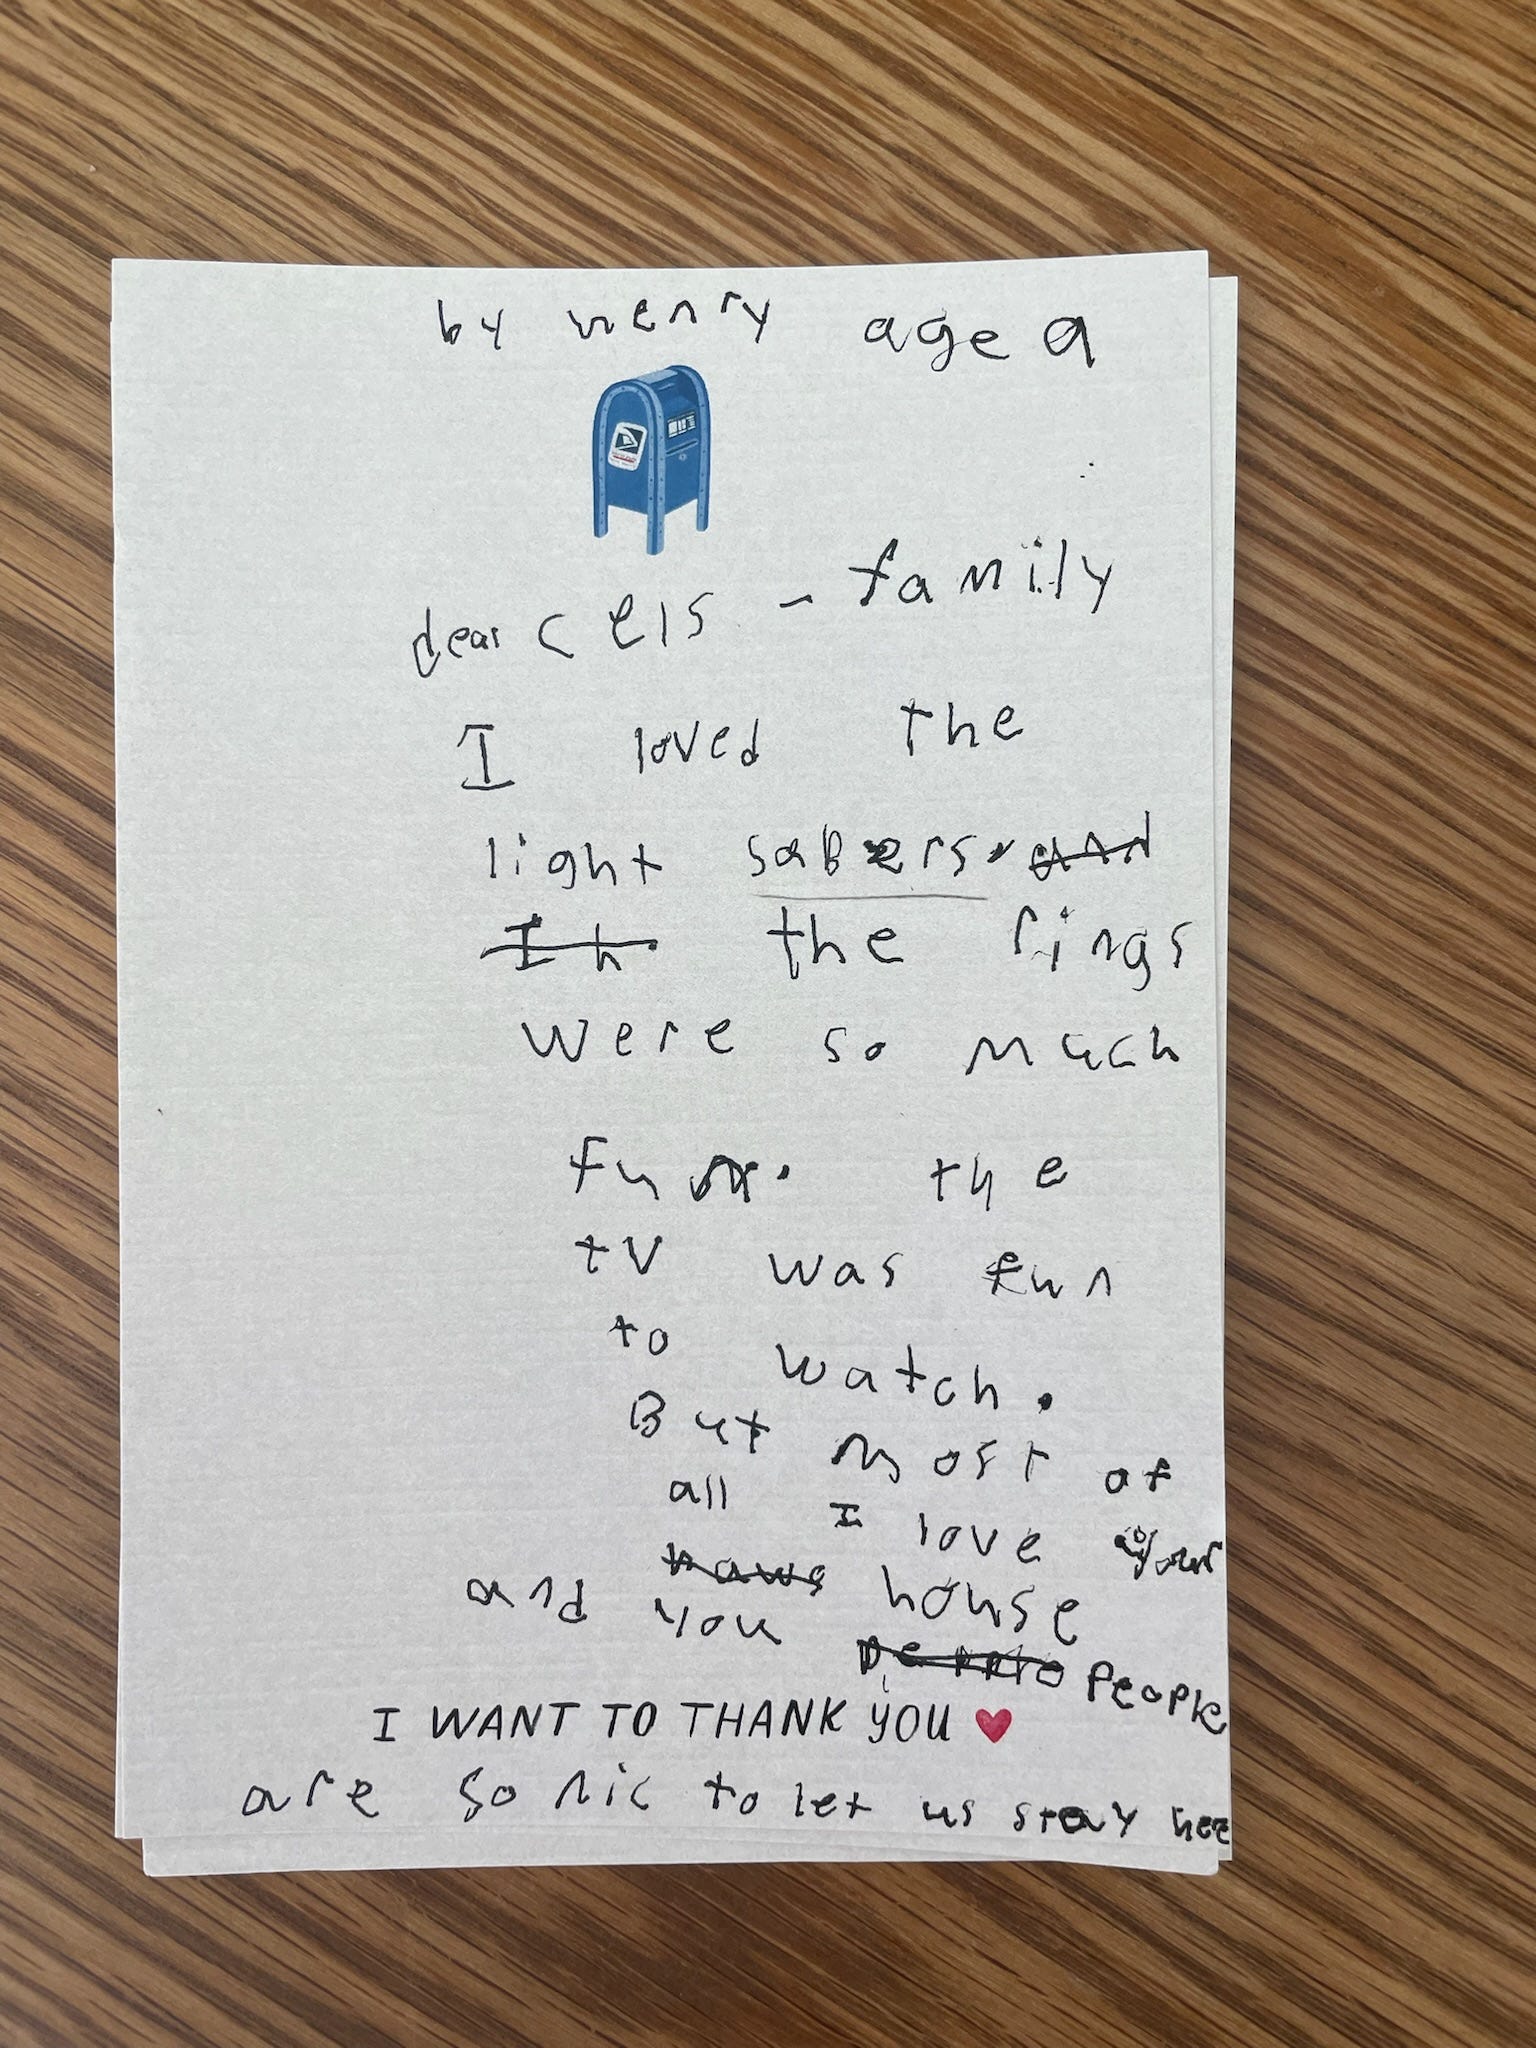 by Henry age 9
dear Cels - family
I loved the
light sabers. and
I h. the rings
were so much
fun. the
tv was fun
to watch.
But most of
all I love your
haws house
and you people
I WANT TO THANK YOU
are so nic to let us stay here